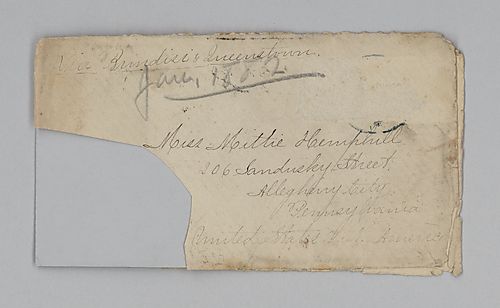 Via Brindisi & Queenstown.
Jan. 18.82.
Miss Mittie Hemphill
206 Sandusky Street.
Allegheny City
Pennsylvania
United States N. America